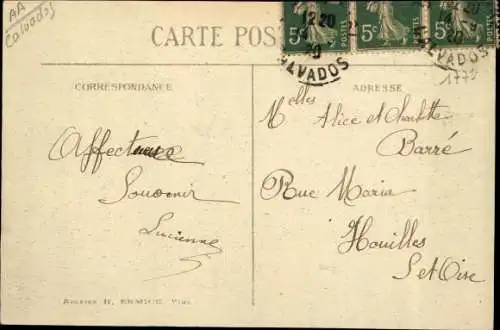 AA
Calvados
CARTE POS
5c
5c
5c
12 20
20
CALVADOS
CALVADOS
CORRESPONDANCE
ADRESSE
Melles Alice et Charlotte
Barré
Rue Maria
Houilles
S et Oise
Affectueux
Souvenir
Lucienne